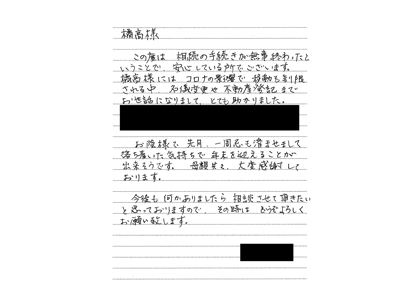 橋高様
この度は 相続の手続きが無事終わったと
いうことで、安心している所でございます。
橋高様には コロナの影響で 移動も制限
される中、名義変更や不動産登記まで
お世話になりまして、とても助かりました。
お陰様で 先月、一周忌も済ませまして
落ち着いた気持ちで 年末を迎えることが
出来そうです。母親共々、大変感謝して
おります。
今後も 何かありましたら 相談させて頂きたい
と思っておりますので、その時は どうぞよろしく
お願い致します。